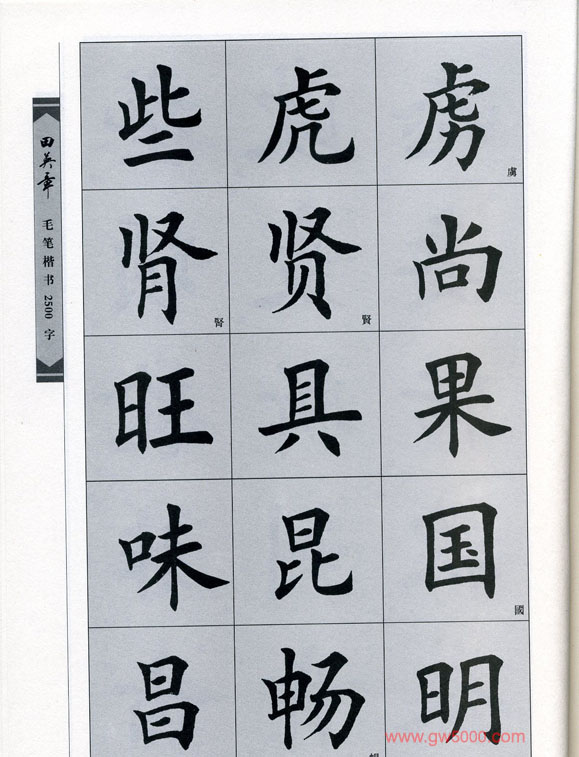 田英章
毛笔楷书2500字
虏 虜
尚
果
国 國
明
虎
贤 賢
具
昆
畅
些
肾 腎
旺
味
昌
www.gw5000.com